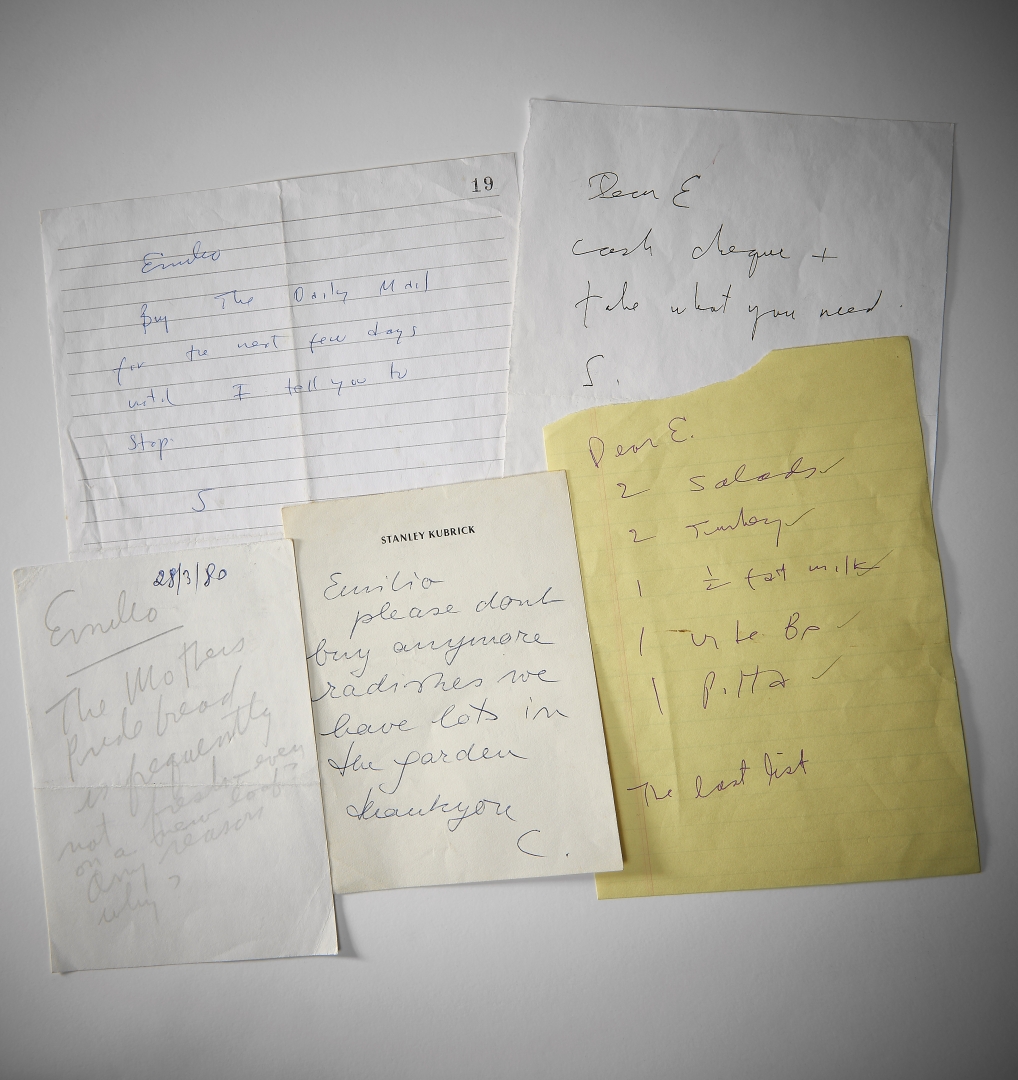 19
Emilio
Buy The Daily Mail
for the next few days
until I tell you to
Stop.
S
Dear E
cash cheque +
take what you need.
S.
Dear E.
2 Salads ✓
2 Turkey ✓
1 ½ fat milk ✓
1 ✓
1 Pitta ✓
The last list
STANLEY KUBRICK
Emilio
please dont
buy anymore
radishes we
have lots in
the garden
thankyou
C.
28/3/80
Emilio
The Mothers
Pride bread
is frequently
not fresh - even
on a new loaf?
Any reason
why?